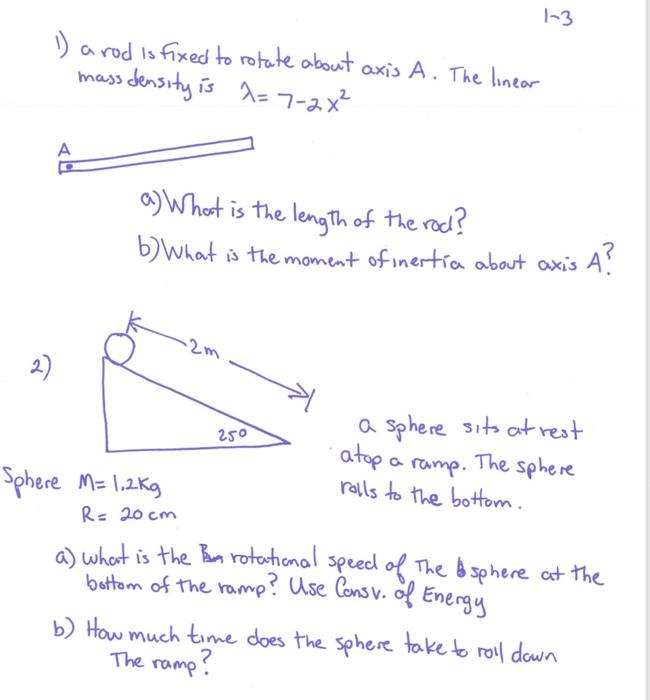 1-3
1) a rod is fixed to rotate about axis A. The linear
mass density is λ= 7-2x²
A
a) What is the length of the rod?
b) What is the moment of inertia about axis A?
2)
2m
25°
a sphere sits at rest
atop a ramp. The sphere
rolls to the bottom.
Sphere M= 1.2Kg
R= 20cm
a) what is the rotational speed of The sphere at the
bottom of the ramp? Use Consv. of Energy
b) How much time does the sphere take to roll down
The ramp?